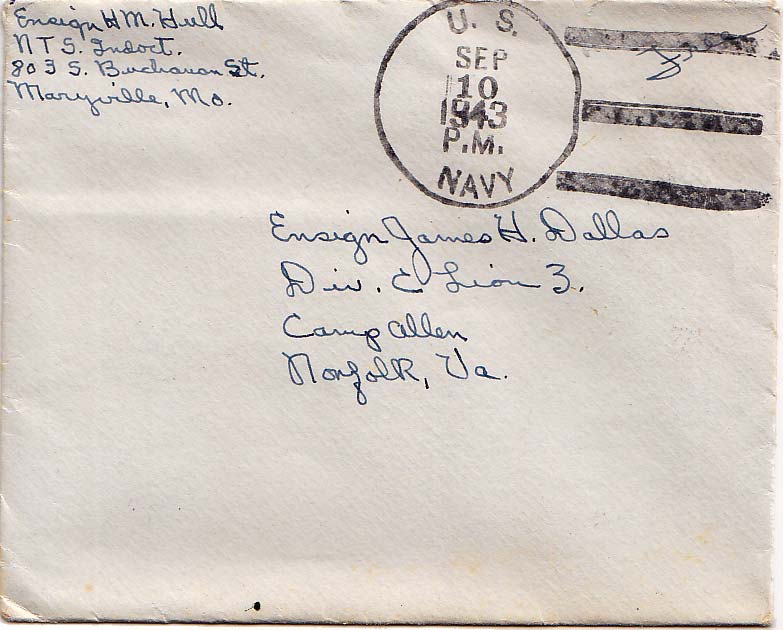 Ensign H M. Hull
N T S. Indoct.
803 S. Buchanan St.
Maryville, Mo.
U. S.
SEP
10
1943
P.M.
NAVY
Free
Ensign James H. Dallas
Div. E Lion 3.
Camp Allen
Norfolk, Va.